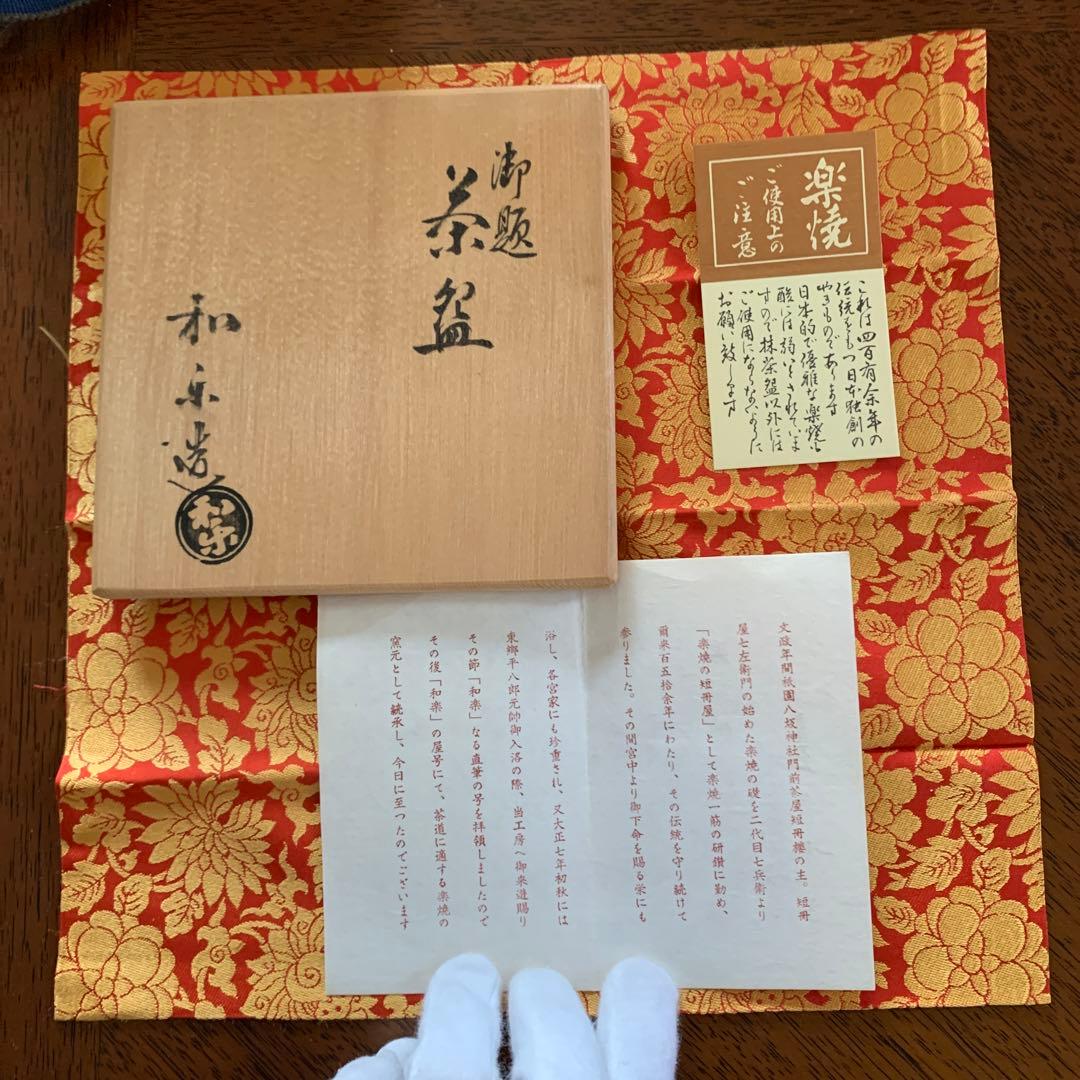 御題
茶盌
和楽造
和楽
楽焼
ご使用上の
ご注意
これは四百有余年の
伝統をもつ日本独創の
やきものであります
日本的で優雅な楽焼も
酸には弱いとされていま
すので抹茶盌以外には
ご使用にならないように
お願い致します
文政年間祇園八坂神社門前茶屋短冊楼の主。短冊
屋七左衛門の始めた楽焼の礎を二代目七兵衛より
「楽焼の短冊屋」として楽焼一筋の研鑽に勤め、
爾来百五拾余年にわたり、その伝統を守り続けて
参りました。その間宮中より御下命を賜る栄にも
浴し、各宮家にも珍重され、又大正七年初秋には
東郷平八郎元帥御入洛の際、当工房へ御来遊賜り
その節「和楽」なる直筆の号を拝領しましたので
その後「和楽」の屋号にて、茶道に適する楽焼の
窯元として継承し、今日に至つたのでございます